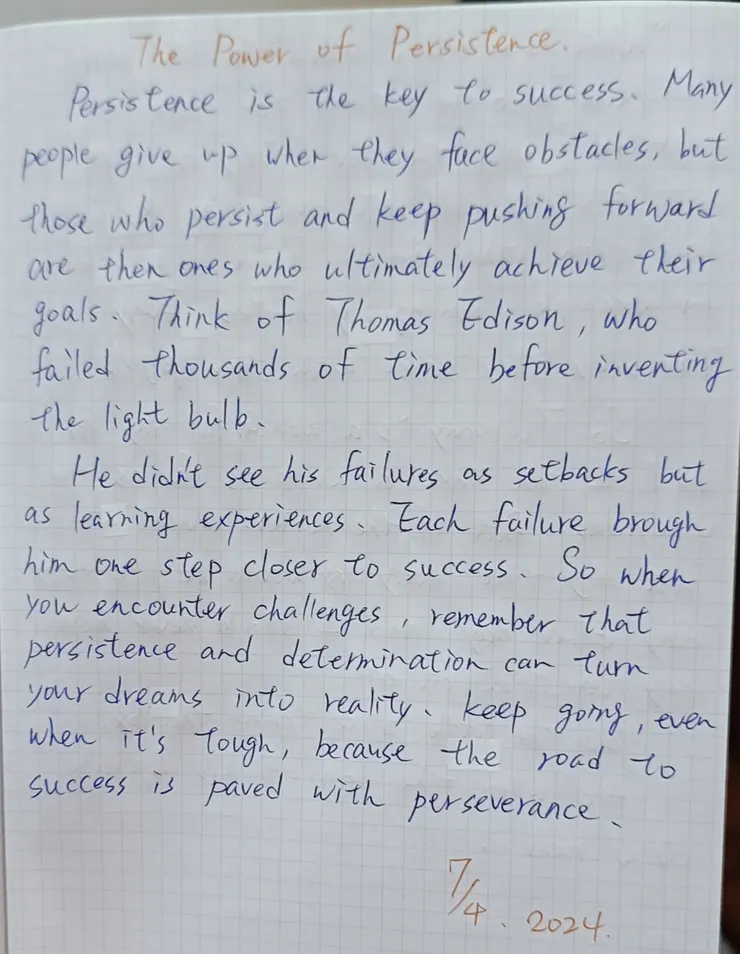 The Power of Persistence.
Persistence is the key to success. Many
people give up when they face obstacles, but
those who persist and keep pushing forward
are then ones who ultimately achieve their
goals. Think of Thomas Edison, who
failed thousands of time before inventing
the light bulb.
He didn't see his failures as setbacks but
as learning experiences. Each failure brough
him one step closer to success. So when
you encounter challenges, remember that
persistence and determination can turn
your dreams into reality. keep going, even
when it's tough, because the road to
success is paved with perseverance.
7/4. 2024.